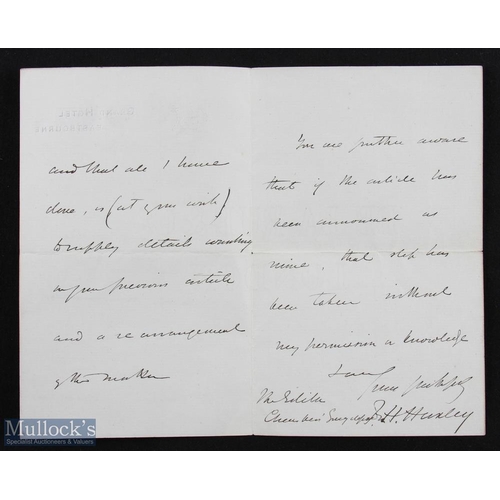 and that all I have
done, is (at your wish)
to supply details wanting
in your previous article
and a re arrangement
of the matter
You are further aware
that if the article has
been announced as
mine, that step has
been taken without
my permission or knowledge
I am
yours faithfully
The Editor
Chambers' Encyclop
T. H. Huxley
Mullock's
Specialist Auctioneers & Valuers